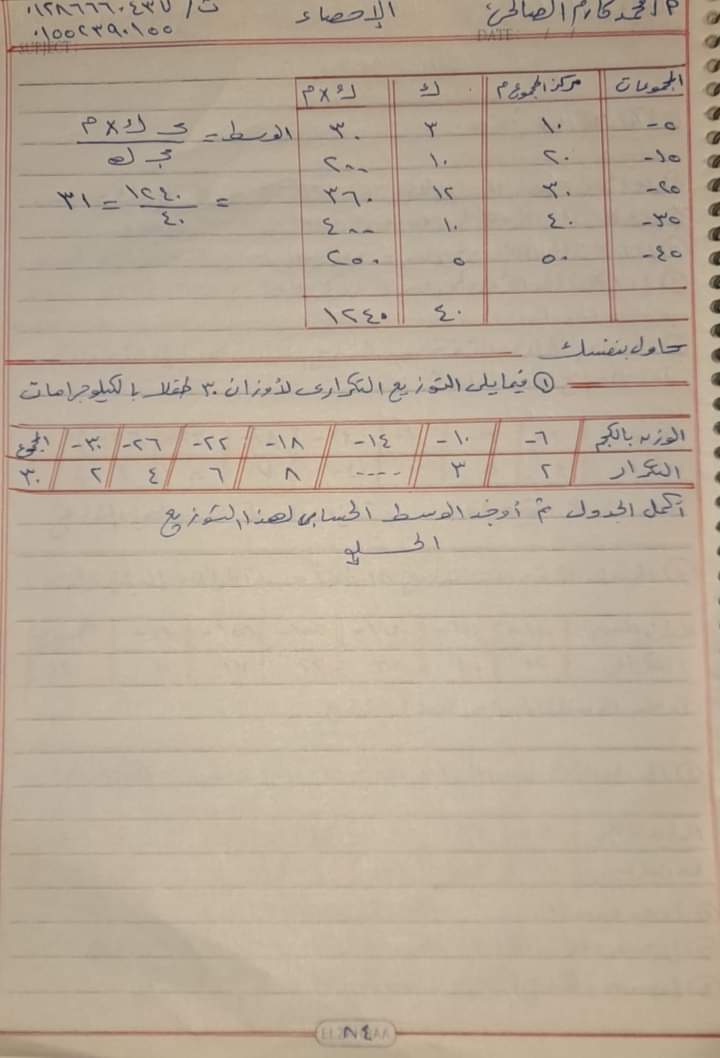 أ/محمد كارم الصالحى الإحصاء ت/ ٠١٢٨٦٦٦٠٤٣٧
٠١٠٠٢٣٩٠١٠٠
DATE: / /
المجموعات مركز المجموع م ك ك×م
٥- ١٠ ٣ ٣٠ الوسط = مجـ ك×م / مجـ ك
١٥- ٢٠ ١٠ ٢٠٠
٢٥- ٣٠ ١٢ ٣٦٠ = ١٢٤٠ / ٤٠ = ٣١
٣٥- ٤٠ ١٠ ٤٠٠
٤٥- ٥٠ ٥ ٢٥٠
٤٠ ١٢٤٠
حاول بنفسك
① فيما يلى التوزيع التكرارى لأوزان ٣٠ طفلا بالكيلوجرامات
الوزن بالكجم ٦- ١٠- ١٤- ١٨- ٢٢- ٢٦- ٣٠- المجموع
التكرار ٢ ٣ ---- ٨ ٦ ٤ ٢ ٣٠
أكمل الجدول ثم أوجد الوسط الحسابى لهذا التوزيع
الحــــلو